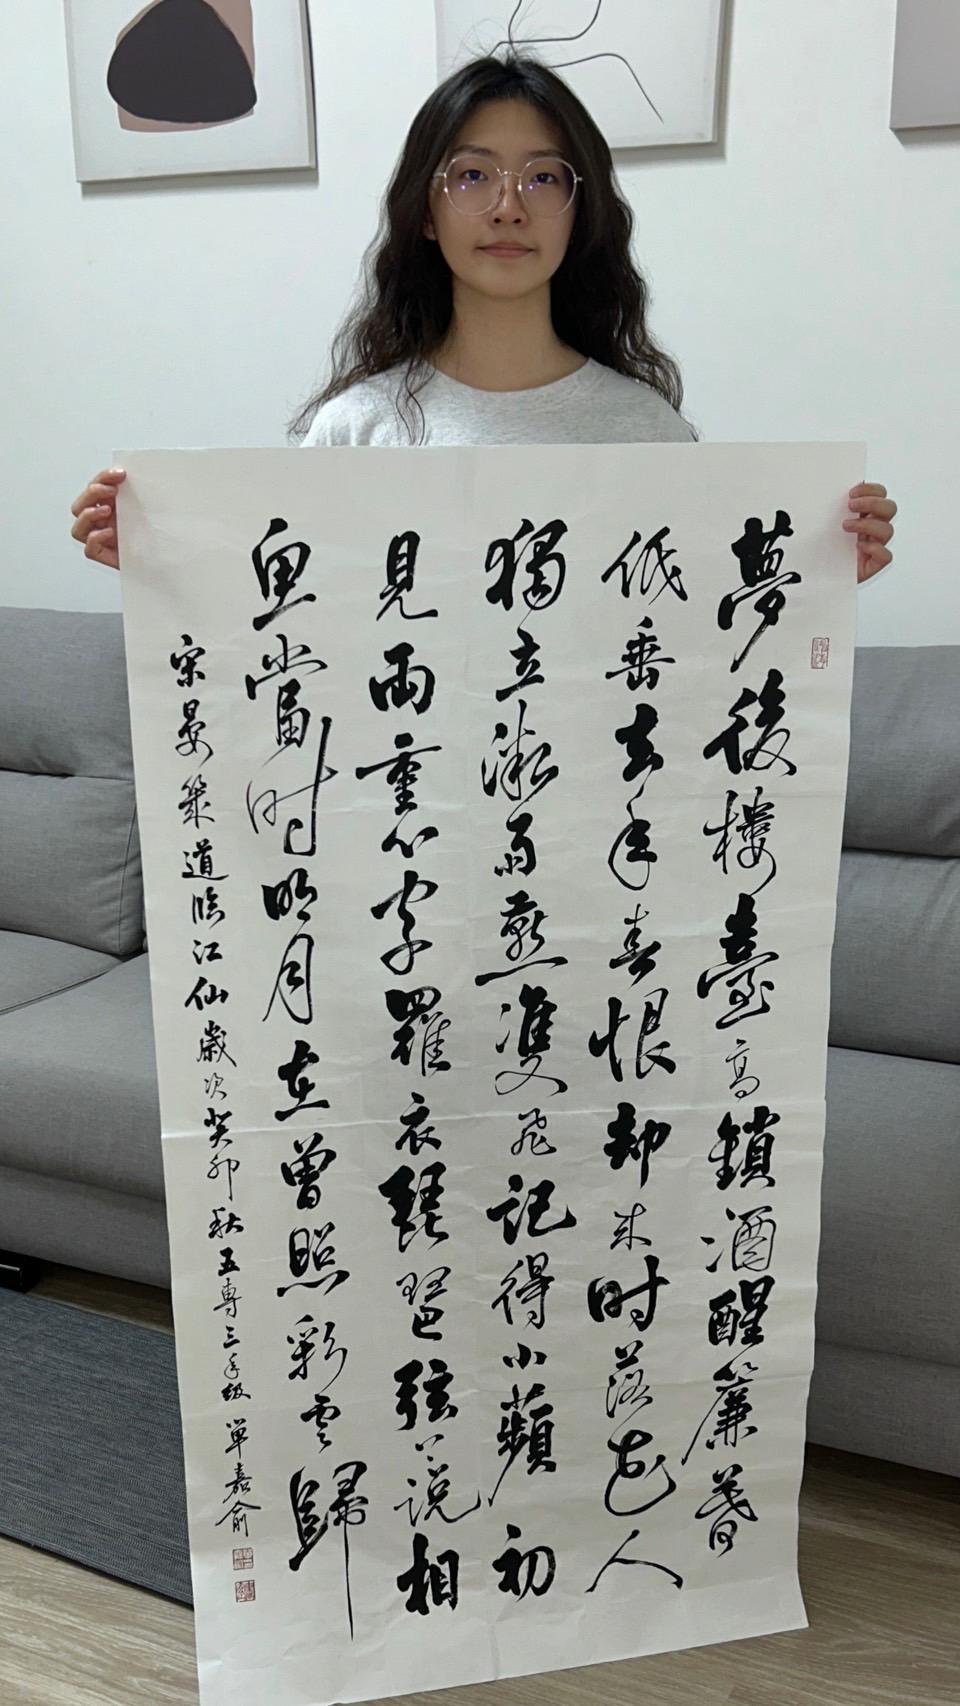 夢後樓臺高鎖酒醒簾幕
低垂去年春恨却来时落花人
獨立微雨燕雙飛記得小蘋初
見兩重心字羅衣琵琶弦上說相
思當时明月在曾照彩雲歸
宋晏幾道臨江仙歲次癸卯秋五專三年級單嘉俞